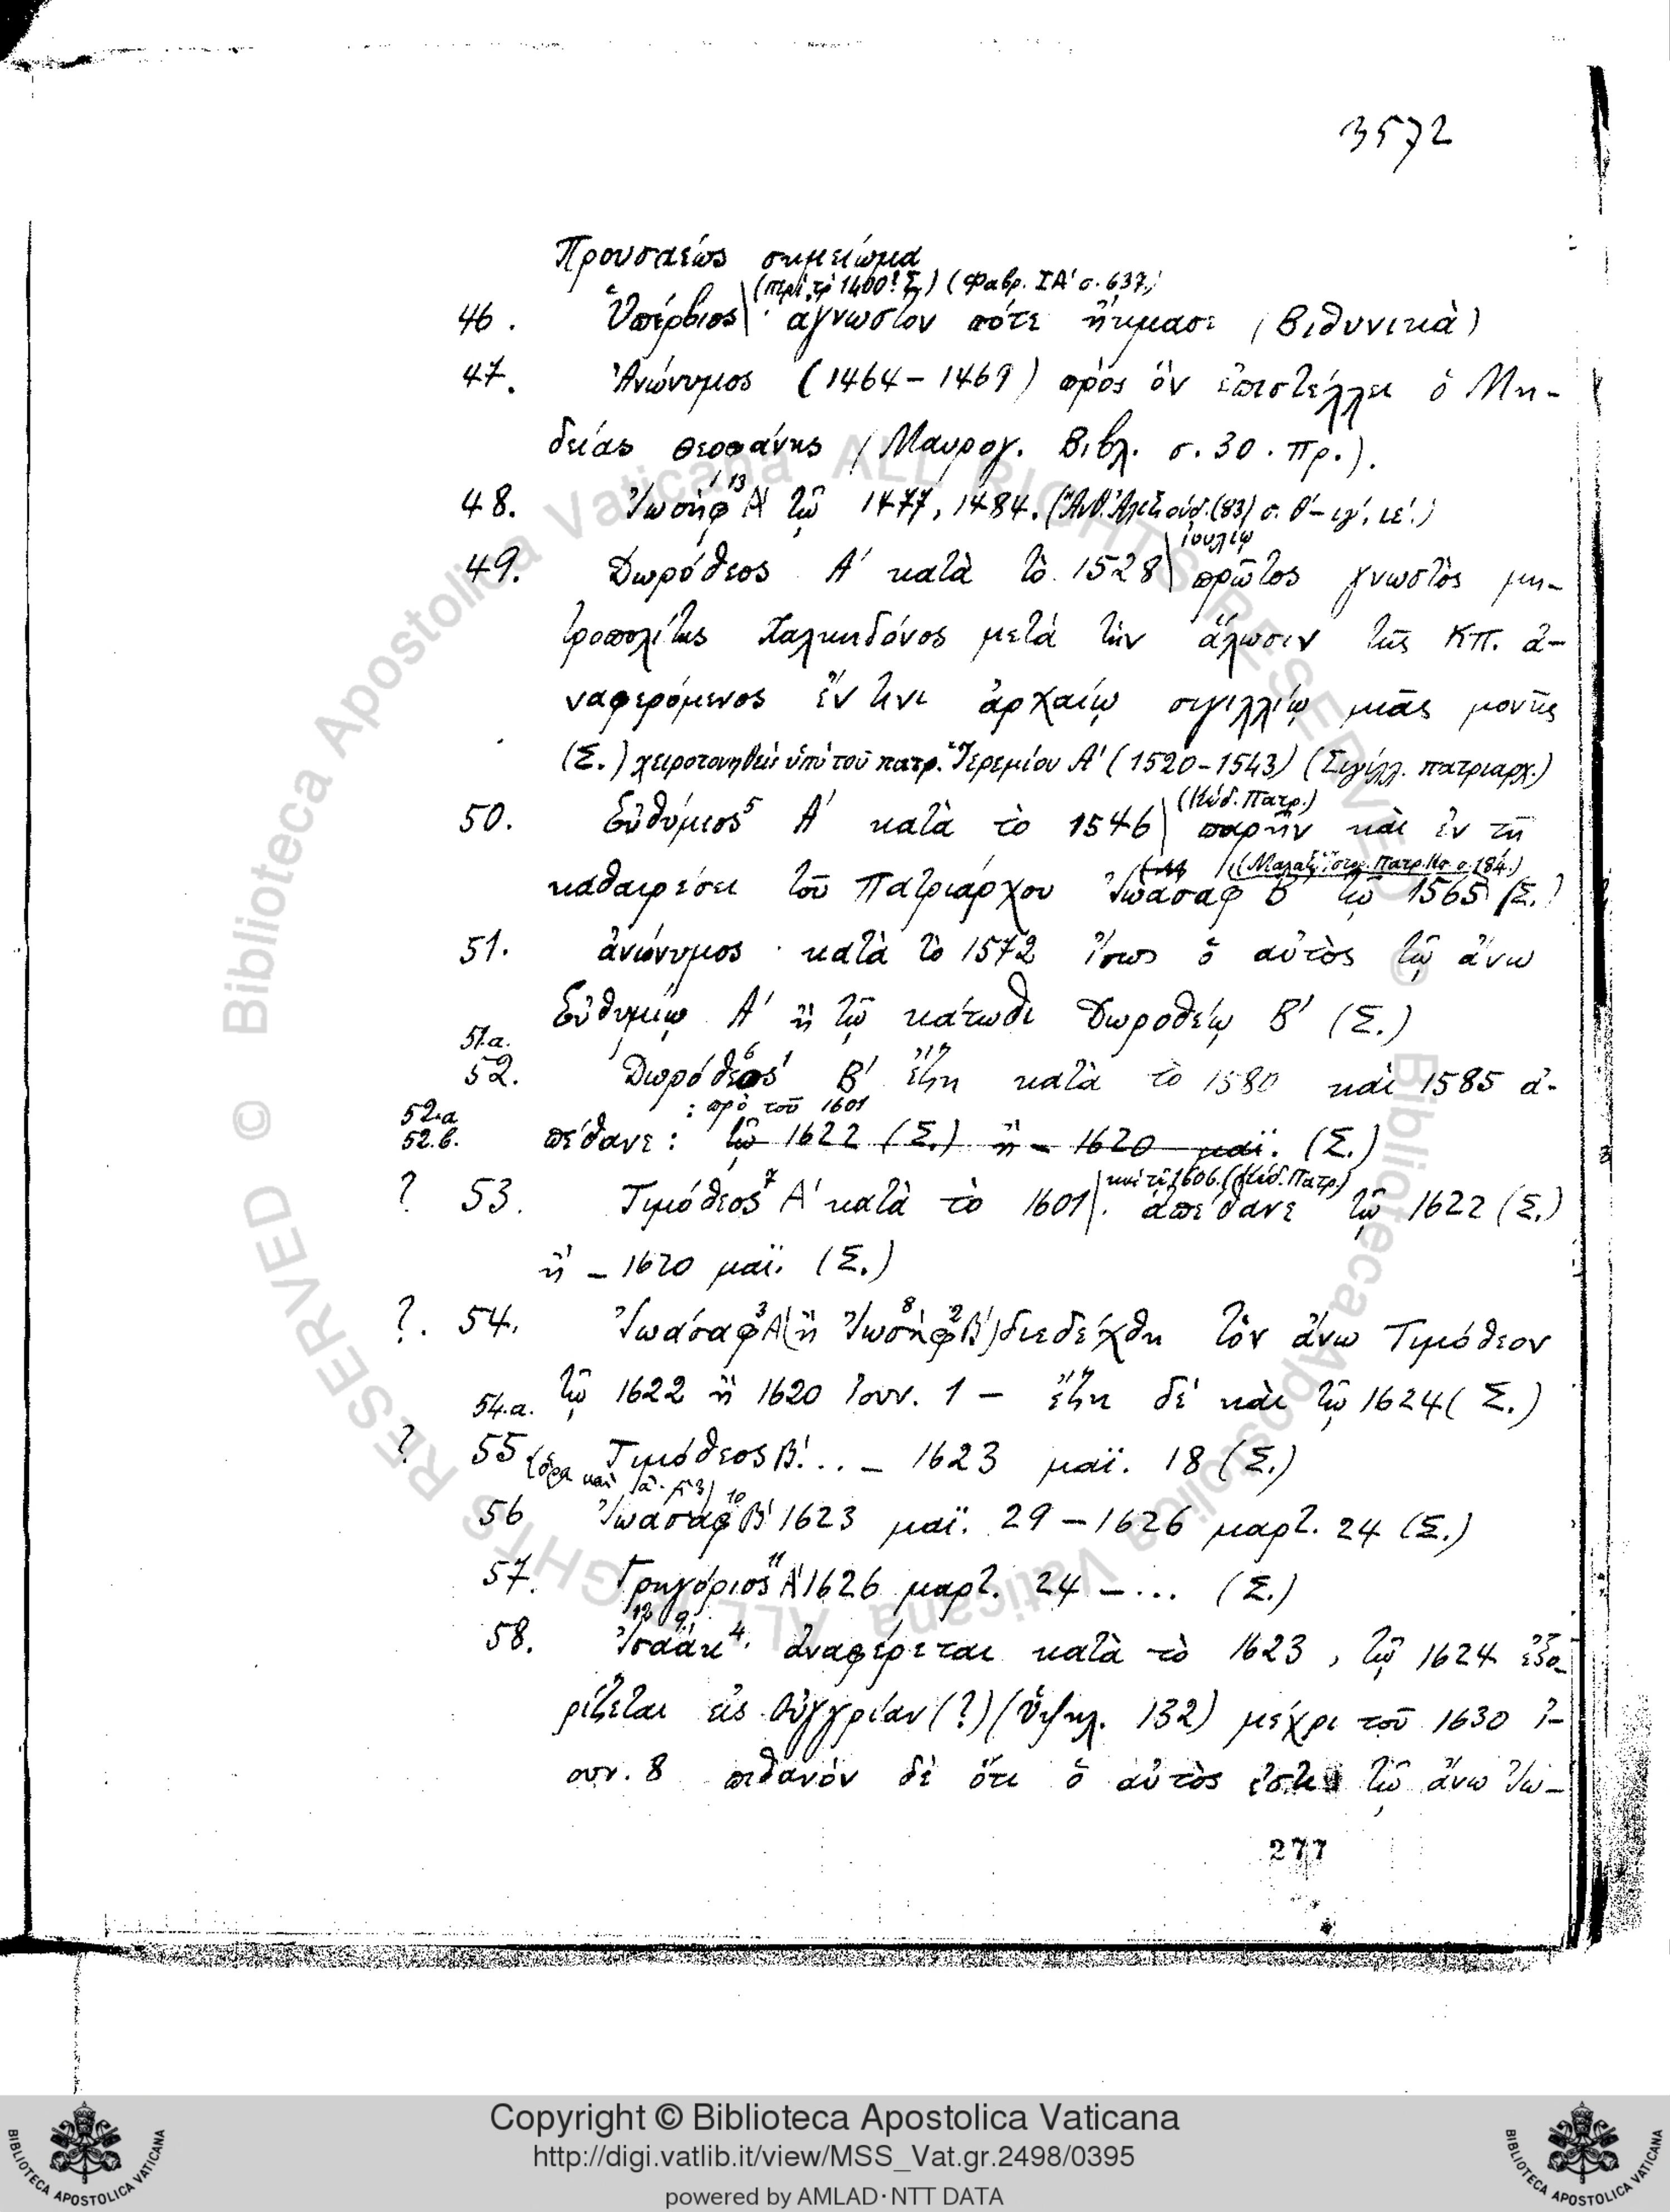 3572
Προυσαέως σημείωμα
(περὶ τὸ 1400! Σ.) (Φαβρ. ΙΑ' σ. 637,)
46. Ὑπέρβιος · ἄγνωστον πότε ἤκμασε (Βιθυνικὰ)
47. Ἀνώνυμος (1464-1469) πρὸς ὃν ἐπιστέλλει ὁ Μη-
δείας Θεοφάνης (Μαυρογ. Βιβλ. σ. 30. πρ.).
48. Ἰωσὴφ 13 Α' τῷ 1477, 1484. σ. θ'- ιγ', ιε'.)
ἰουλίῳ
49. Δωρόθεος Α' κατὰ τὸ 1528 πρῶτος γνωστὸς μη-
τροπολίτης Χαλκηδόνος μετὰ τὴν ἅλωσιν τῆς ΚΠ. ἀ-
ναφερόμενος ἔν τινι ἀρχαίῳ σιγιλλίῳ μιᾶς μονῆς
(Σ.) χειροτονηθεὶς ὑπὸ τοῦ πατρ. Ἱερεμίου Α' (1520-1543) (Σιγίλλ. πατριαρχ.)
(Κώδ. Πατρ.)
50. Εὐθύμιος 5 Α' κατὰ τὸ 1546 παρῆν καὶ ἐν τῇ
(Μαλαξ. Ἱστορ. Πατρ. Κπ. σ. 184.)
καθαιρέσει τοῦ Πατριάρχου Ἰωάσαφ Β' τῷ 1565 (Σ.)
51. ἀνώνυμος · κατὰ τὸ 1572 ἴσως ὁ αὐτὸς τῷ ἄνω
Εὐθυμίῳ Α' ἢ τῷ κάτωθι Δωροθέῳ Β' (Σ.)
51.α.
52. Δωρόθεος 6 Β' ἔζη κατὰ τὸ 1580 καὶ 1585 ἀ-
: πρὸ τοῦ 1601
52.α
52.β. πέθανε: τῷ 1622 (Σ.) ἢ - 1620 μαΐ. (Σ.)
καὶ τῷ 1606. (Κώδ. Πατρ.)
? 53. Τιμόθεος 7 Α' κατὰ τὸ 1601 . ἀπέθανε τῷ 1622 (Σ.)
ἢ - 1620 μαΐ. (Σ.)
?. 54. Ἰωάσαφ 3 Α' (ἢ Ἰωσὴφ 8 2 Β') διεδέχθη τὸν ἄνω Τιμόθεον
54.α. τῷ 1622 ἢ 1620 Ἰουν. 1 - ἔζη δὲ καὶ τῷ 1624 (Σ.)
? 55 Τιμόθεος Β'... - 1623 μαΐ. 18 (Σ.)
(ὅρα καὶ
56 Ἰωάσαφ 10 Β' 1623 μαΐ. 29 - 1626 μαρτ. 24 (Σ.)
57. Γρηγόριος 11 Α' 1626 μαρτ. 24 - ... (Σ.)
12 9
58. Ἰσαὰκ 4. ἀναφέρεται κατὰ τὸ 1623, τῷ 1624 ἐξο-
ρίζεται εἰς Οὐγγρίαν (?) (Ὑψηλ. 132) μέχρι τοῦ 1630 ἰ-
ουν. 8 πιθανὸν δὲ ὅτι ὁ αὐτὸς ἐστι τῷ ἄνω Ἰω-
277
© Biblioteca Apostolica Vaticana ALL RIGHTS RESERVED
© Biblioteca Apostolica Vaticana ALL RIGHTS RESERVED
Copyright © Biblioteca Apostolica Vaticana
http://digi.vatlib.it/view/MSS_Vat.gr.2498/0395
powered by AMLAD·NTT DATA
BIBLIOTECA APOSTOLICA VATICANA
BIBLIOTECA APOSTOLICA VATICANA